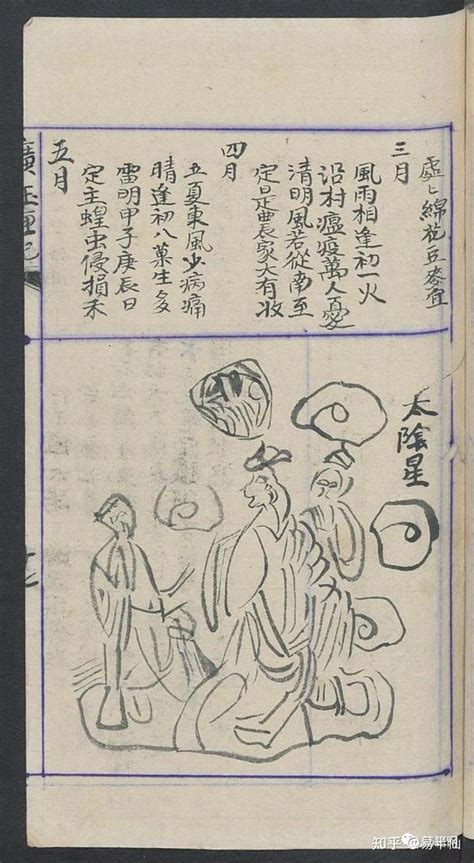 處〻綿花豆麥宜
三月
風雨相逢初一火
沿村瘟疫萬人憂
清明風若從南至
定是農家大有收
四月
立夏東風少病痛
晴逢初八菓生多
雷明甲子庚辰日
定主蝗虫侵損禾
五月
太陰星
知乎 @易半仙